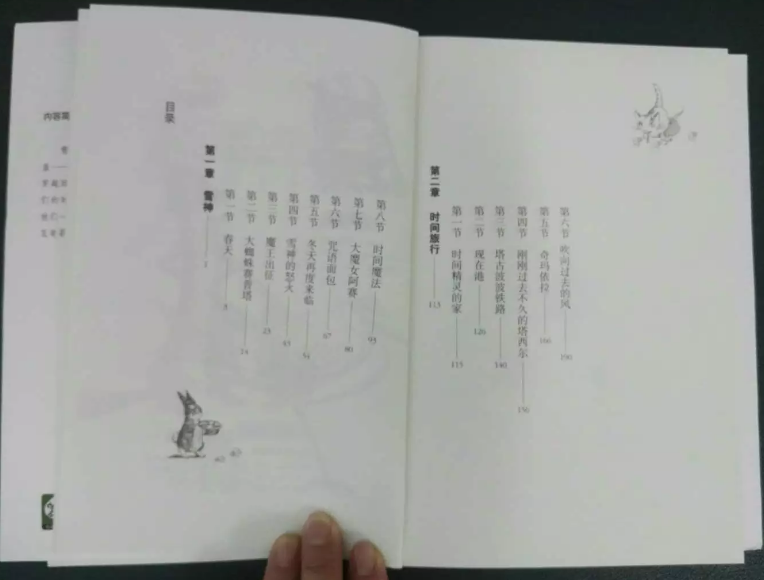 目录
第一章 雪神——1
第一节 春天——3
第二节 大蜘蛛赛普塔——14
第三节 魔王出征——23
第四节 雪神的怒火——43
第五节 冬天再度来临——51
第六节 咒语面包——67
第七节 大魔女阿赛——80
第八节 时间魔法——93
第二章 时间旅行——113
第一节 时间精灵的家——115
第二节 现在港——126
第三节 塔古波波铁路——140
第四节 刚刚过去不久的塔西尔——156
第五节 奇玛依拉——166
第六节 吹向过去的风——190
内容简